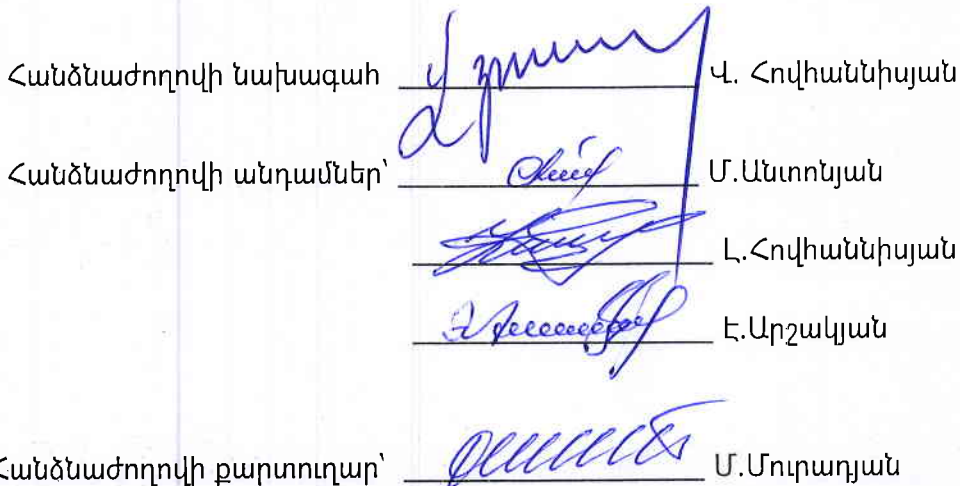 Հանձնաժողովի նախագահ Վ. Հովհաննիսյան
Հանձնաժողովի անդամներ՝ Մ.Անտոնյան
Լ.Հովհաննիսյան
Է.Արշակյան
Հանձնաժողովի քարտուղար՝ Մ.Մուրադյան